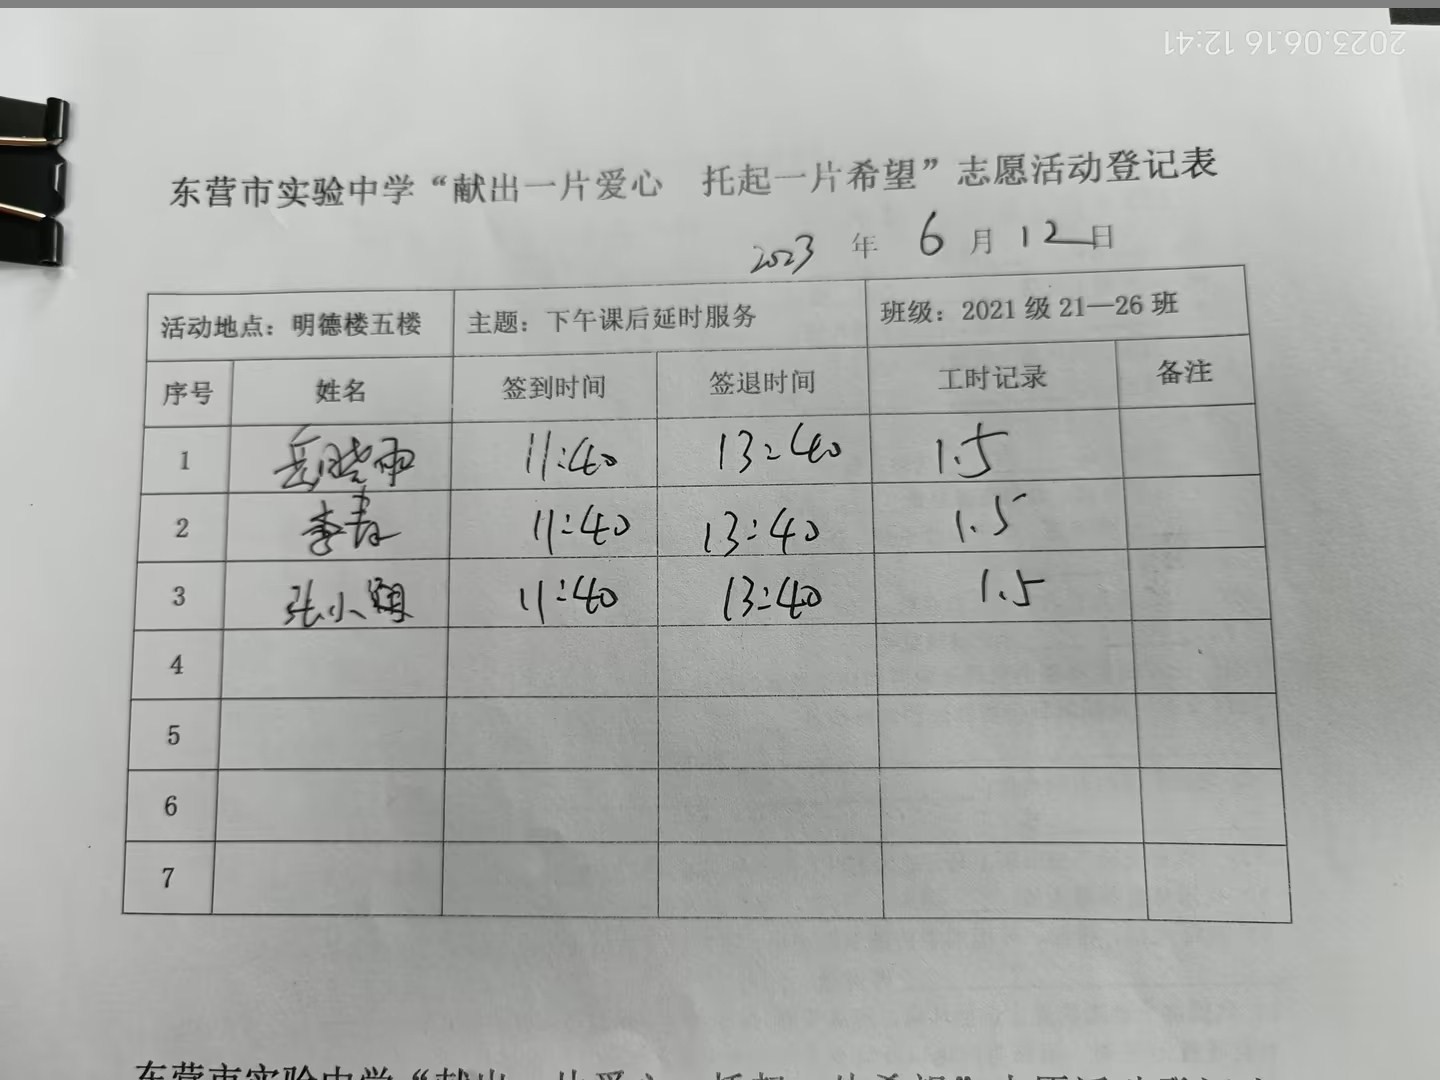 2023.06.16 12:41
东营市实验中学“献出一片爱心 托起一片希望”志愿活动登记表
2023 年 6 月 12 日
活动地点：明德楼五楼 主题：下午课后延时服务 班级：2021 级 21—26 班
序号 姓名 签到时间 签退时间 工时记录 备注
1 岳晓雨 11:40 13:40 1.5
2 李青 11:40 13:40 1.5
3 张小翔 11:40 13:40 1.5
4
5
6
7
东营市实验中学“献出一片爱心 托起一片希望”志愿活动登记表